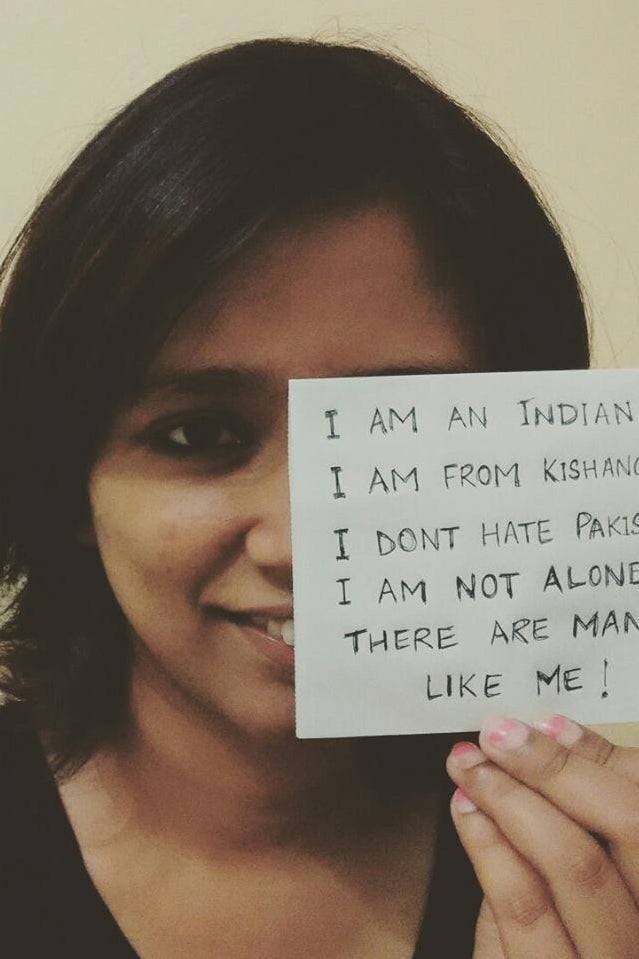 I AM AN INDIAN
I AM FROM KISHAN
I DONT HATE PAKIS
I AM NOT ALONE
THERE ARE MAN
LIKE ME!